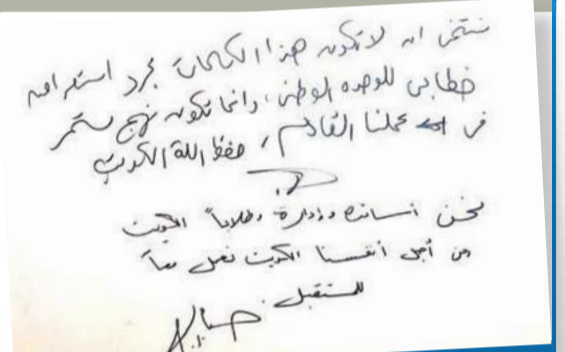 نتمنى ان لا تكون هذا الكلمات مجرد استعراض
خطابي للوحده الوطني، وانما تكون نهج مستمر
في عملنا القادم، حفظ الله الكويت
نحن أساتذه وإدارة وطلاباً الكويت
من أجل أنفسنا الكويت نعمل معاً
للمستقبل